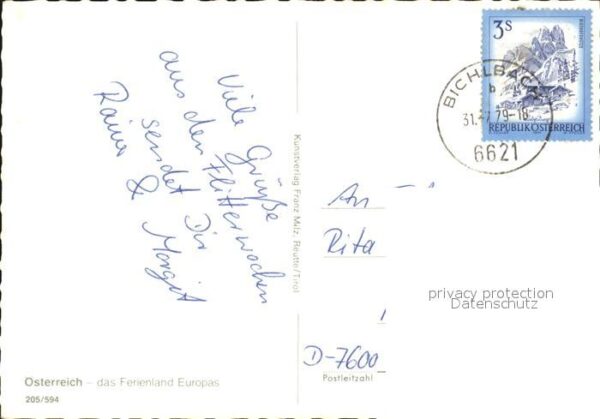 Viele Grüße
aus den Flitterwochen
sendet Dir
Rainer & Margit
Kunstverlag Franz Milz, Reutte/Tirol
3S
REPUBLIK ÖSTERREICH
BICHLBACH
b
79-18
6621
An
Rita
D-7600
Postleitzahl
privacy protection
Datenschutz
Österreich – das Ferienland Europas
205/594